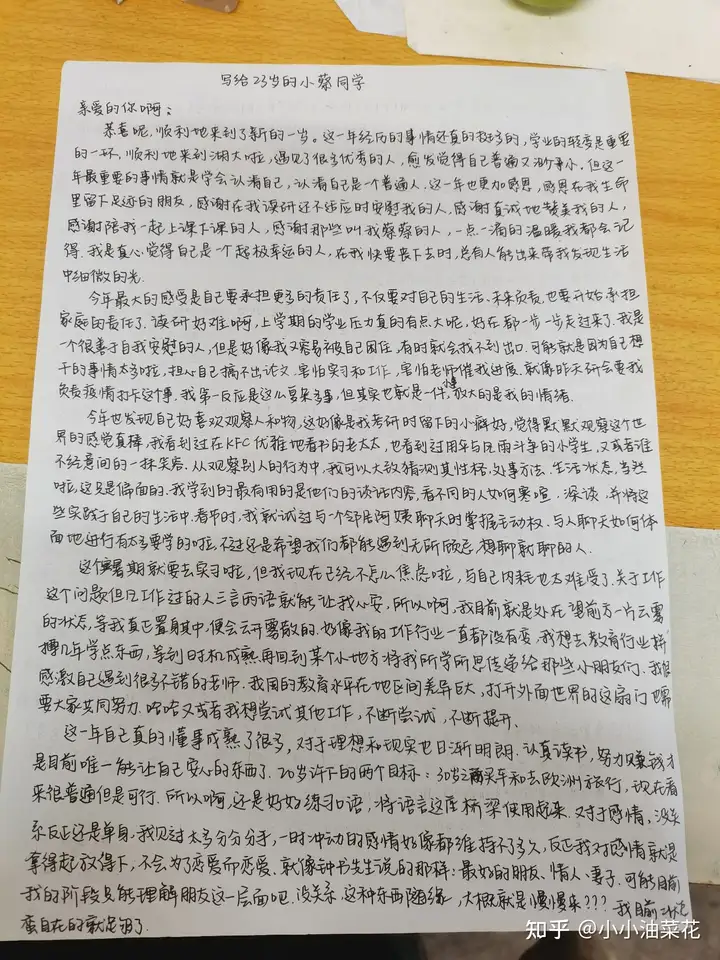 写给23岁的小蔡同学
亲爱的你啊：
恭喜呢，顺利地来到了新的一岁。这一年经历的事情还真的挺多的，学业的转变是重要
的一环，顺利地来到湖大啦，遇见了很多优秀的人，愈发觉得自己普通又渺小。但这一
年最重要的事情就是学会认清自己，认清自己是一个普通人。这一年也更加感恩，感恩在我生命
里留下足迹的朋友，感谢在我读研还不适应时安慰我的人，感谢真诚地赞美我的人，
感谢陪我一起上课下课的人，感谢那些叫我蔡蔡的人，一点一滴的温暖我都会记
得。我是真心觉得自己是一个超极幸运的人，在我快要丧下去时，总有人能出来带我发现生活
中细微的光.
今年最大的感受是自己要承担更多的责任了，不仅要对自己的生活、未来负责，也要开始承担
家庭的责任了。读研好难啊，上学期的学业压力真的有点大呢，好在都一步一步走过来了。我是
一个很善于自我安慰的人，但是好像我又容易被自己困住，有时就会找不到出口。可能就是因为自己想
干的事情太多啦，担心自己搞不出论文，害怕实习和工作，害怕老师催我进展，就像昨天研会要我
负责疫情打卡这个事，我第一反应是这么多事，但其实也就是一件事，放大的是我的情绪.
今年也发现自己好喜欢观察人和物，这好像是我考研时留下的小癖好，觉得默默观察这个世
界的感觉真棒，我看到过在KFC优雅地看书的老太太，也看到过用伞与风雨斗争的小学生，又或者谁
不经意间的一抹笑容。从观察别人的行为中，我可以大致猜测其性格、处事方法、生活状态，当然
啦，这只是偏面的。我学到的最有用的是他们的谈话内容，看不同的人如何寒喧、深谈，并将这
些实践于自己的生活中.看牙时，我就试过与一个邻居阿姨聊天时掌握主动权。与人聊天如何体
面地进行有太多要学的啦，不过还是希望我们都能遇到无所顾忌，想聊就聊的人.
这个暑期就要去实习啦，但我现在已经不怎么焦虑啦，与自己内耗也太难受了.关于工作
这个问题但凡工作过的人三言两语就能让我心安，所以啊，我目前就是处在望前方一片云雾
的状态，等我真正置身其中，便会云开雾散的.好像我的工作行业一直都没有变，我想去教育行业
几年学点东西，等到时机成熟再回到某个小地方将我所学所思传递给那些小朋友们。我很
感激自己遇到很多不错的老师。我国的教育水平在地区间差异巨大，打开外面世界的这扇门也需
要大家共同努力.哈哈又或者我想尝试其他工作，不断尝试，不断提升、
这一年自己真的懂事成熟了很多，对于理想和现实也日渐明朗.认真读书，努力赚钱才
是目前唯一能让自己安心的东西了.20岁许下的两个目标：30岁之前买车和去欧洲旅行，现在看
来很普通但是可行.所以啊，还是好好练习口语，将语言这座桥梁使用起来.对于感情，没关
系反正还是单身.我见过太多分分分手，一时冲动的感情好像都维持不了多久，反正我对感情就是
拿得起放得下，不会为了恋爱而恋爱.就像钟书先生说的那样：最好的朋友、情人、妻子.可能目前
我的阶段只能理解朋友这一层面吧.没关系，这种东西随缘，大概就是慢慢来???我目前
蛮自在的就是咯了.
知乎 @小小油菜花